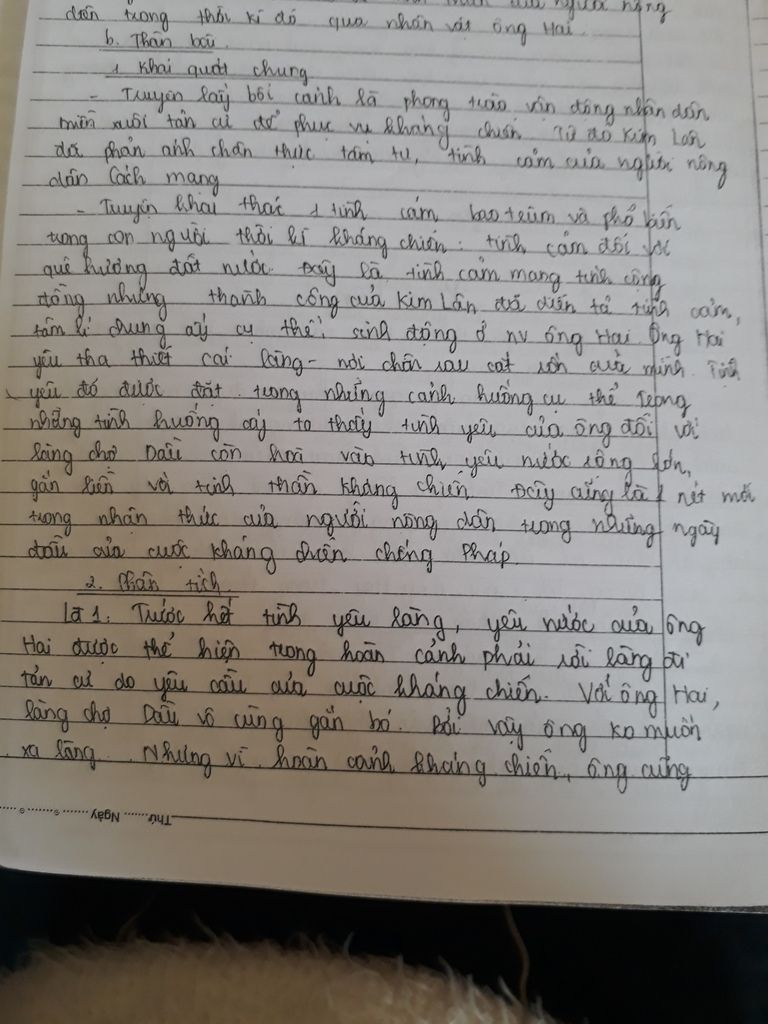 người nông
dân trong thời kì đó qua nhân vật ông Hai.
b. Thân bài.
1 Khái quát chung
- Truyện lấy bối cảnh là phong trào vận động nhân dân
miền xuôi tản cư để phục vụ kháng chiến. Từ đó Kim Lân
đã phản ánh chân thực tâm tư, tình cảm của người nông
dân Cách mạng
- Truyện khai thác 1 tình cảm bao trùm và phổ biến
trong con người thời kì kháng chiến: tình cảm đối với
quê hương đất nước. Đây là tình cảm mang tính cộng
đồng nhưng thành công của Kim Lân đã diễn tả tình cảm,
tâm lí chung ấy cụ thể, sinh động ở nv ông Hai. Ông Hai
yêu tha thiết cái làng - nơi chôn rau cắt rốn của mình. Tình
yêu đó được đặt trong những cảnh huống cụ thể. Trong
những tình huống ấy ta thấy tình yêu của ông đối với
làng chợ Dầu còn hoà vào tình yêu nước rộng lớn,
gắn liền với tinh thần kháng chiến. Đây cũng là 1 nét mới
trong nhận thức của người nông dân trong những ngày
đầu của cuộc kháng chiến chống Pháp.
2. Phân tích.
LĐ 1: Trước hết tình yêu làng, yêu nước của ông
Hai được thể hiện trong hoàn cảnh phải rời làng đi
tản cư do yêu cầu của cuộc kháng chiến. Với ông Hai,
làng chợ Dầu vô cùng gắn bó. Bởi vậy ông ko muốn
xa làng. Nhưng vì hoàn cảnh kháng chiến, ông cũng
Thứ....... Ngày.......